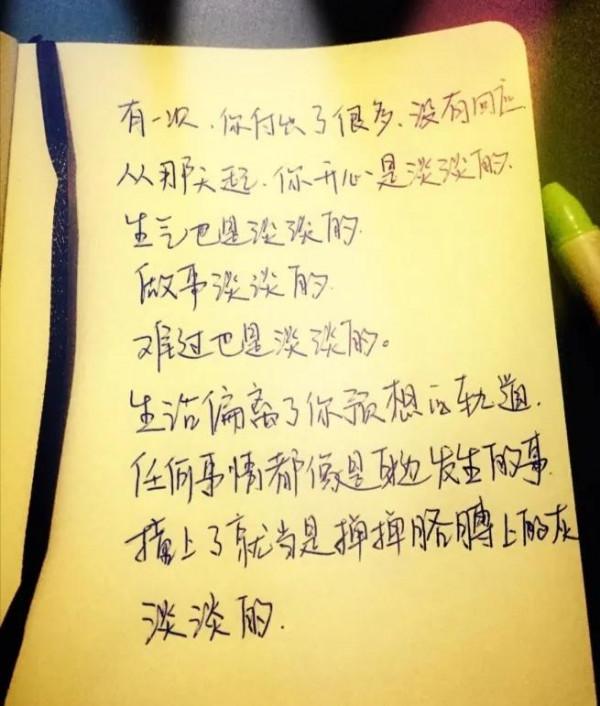 有一次.你付出了很多.没有回应
从那天起.你开心是淡淡的.
生气也是淡淡的.
做事淡淡的.
难过也是淡淡的。
生活偏离了你预想的轨道.
任何事情都像是身边发生的事
撞上了就当是掸掸胳膊上的灰
淡淡的.